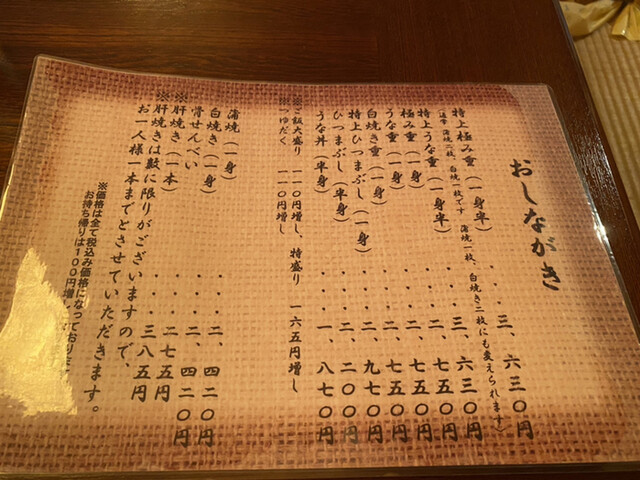 おしながき
特上極み重(一身半)・・・三、六三〇円
(通常 蒲焼二枚、白焼一枚です 蒲焼一枚、白焼き二枚にも変えられます)
特上うな重(一身半)・・・三、六三〇円
極み重(一身)・・・二、七五〇円
うな重(一身)・・・二、七五〇円
白焼き重(一身)・・・二、七五〇円
特上ひつまぶし(一身)・・・二、九七〇円
ひつまぶし(半身)・・・二、二〇〇円
うな丼(半身)・・・一、八七〇円
※ご飯大盛り 一一〇円増し、特盛り 一六五円増し
※つゆだく 一一〇円増し
蒲焼(一身)・・・二、四二〇円
白焼き(一身)・・・二、四二〇円
骨せんべい・・・二七五円
※肝焼き(一本)・・・三八五円
※肝焼きは数に限りがございますので、
お一人様一本までとさせていただきます。
※価格は全て税込み価格になっており
お持ち帰りは100円増し